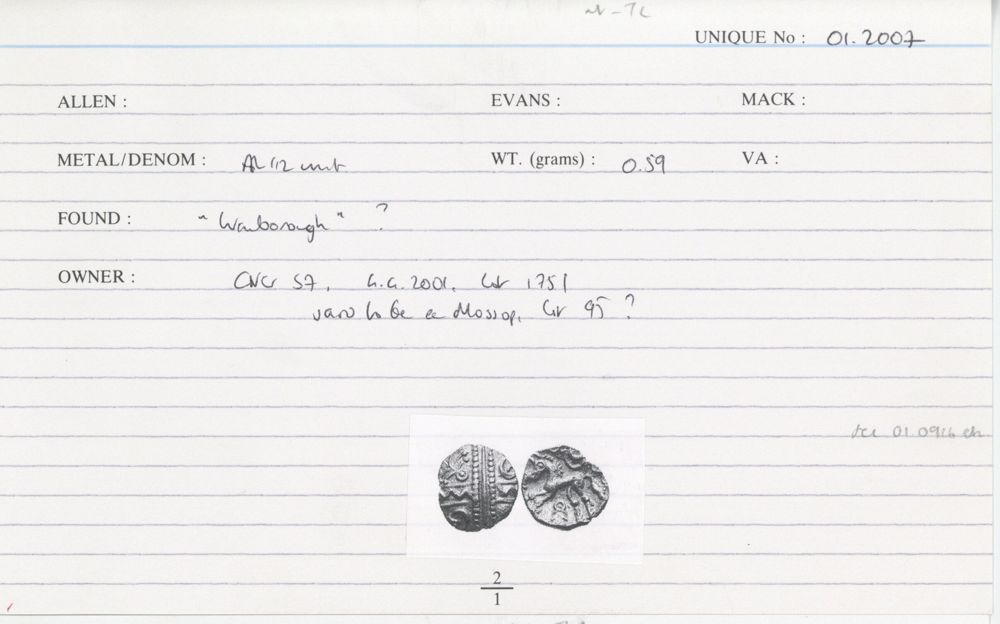 UNIQUE No : 01.2007
ALLEN :
EVANS :
MACK :
METAL/DENOM : AR 1/2 unit
WT. (grams) : 0.59
VA :
FOUND : "Wanborough" ?
OWNER : CNG 57, 4.4.2001, lot 1751
said to be ex Mossop, lot 95 ?
01.0916
2
1